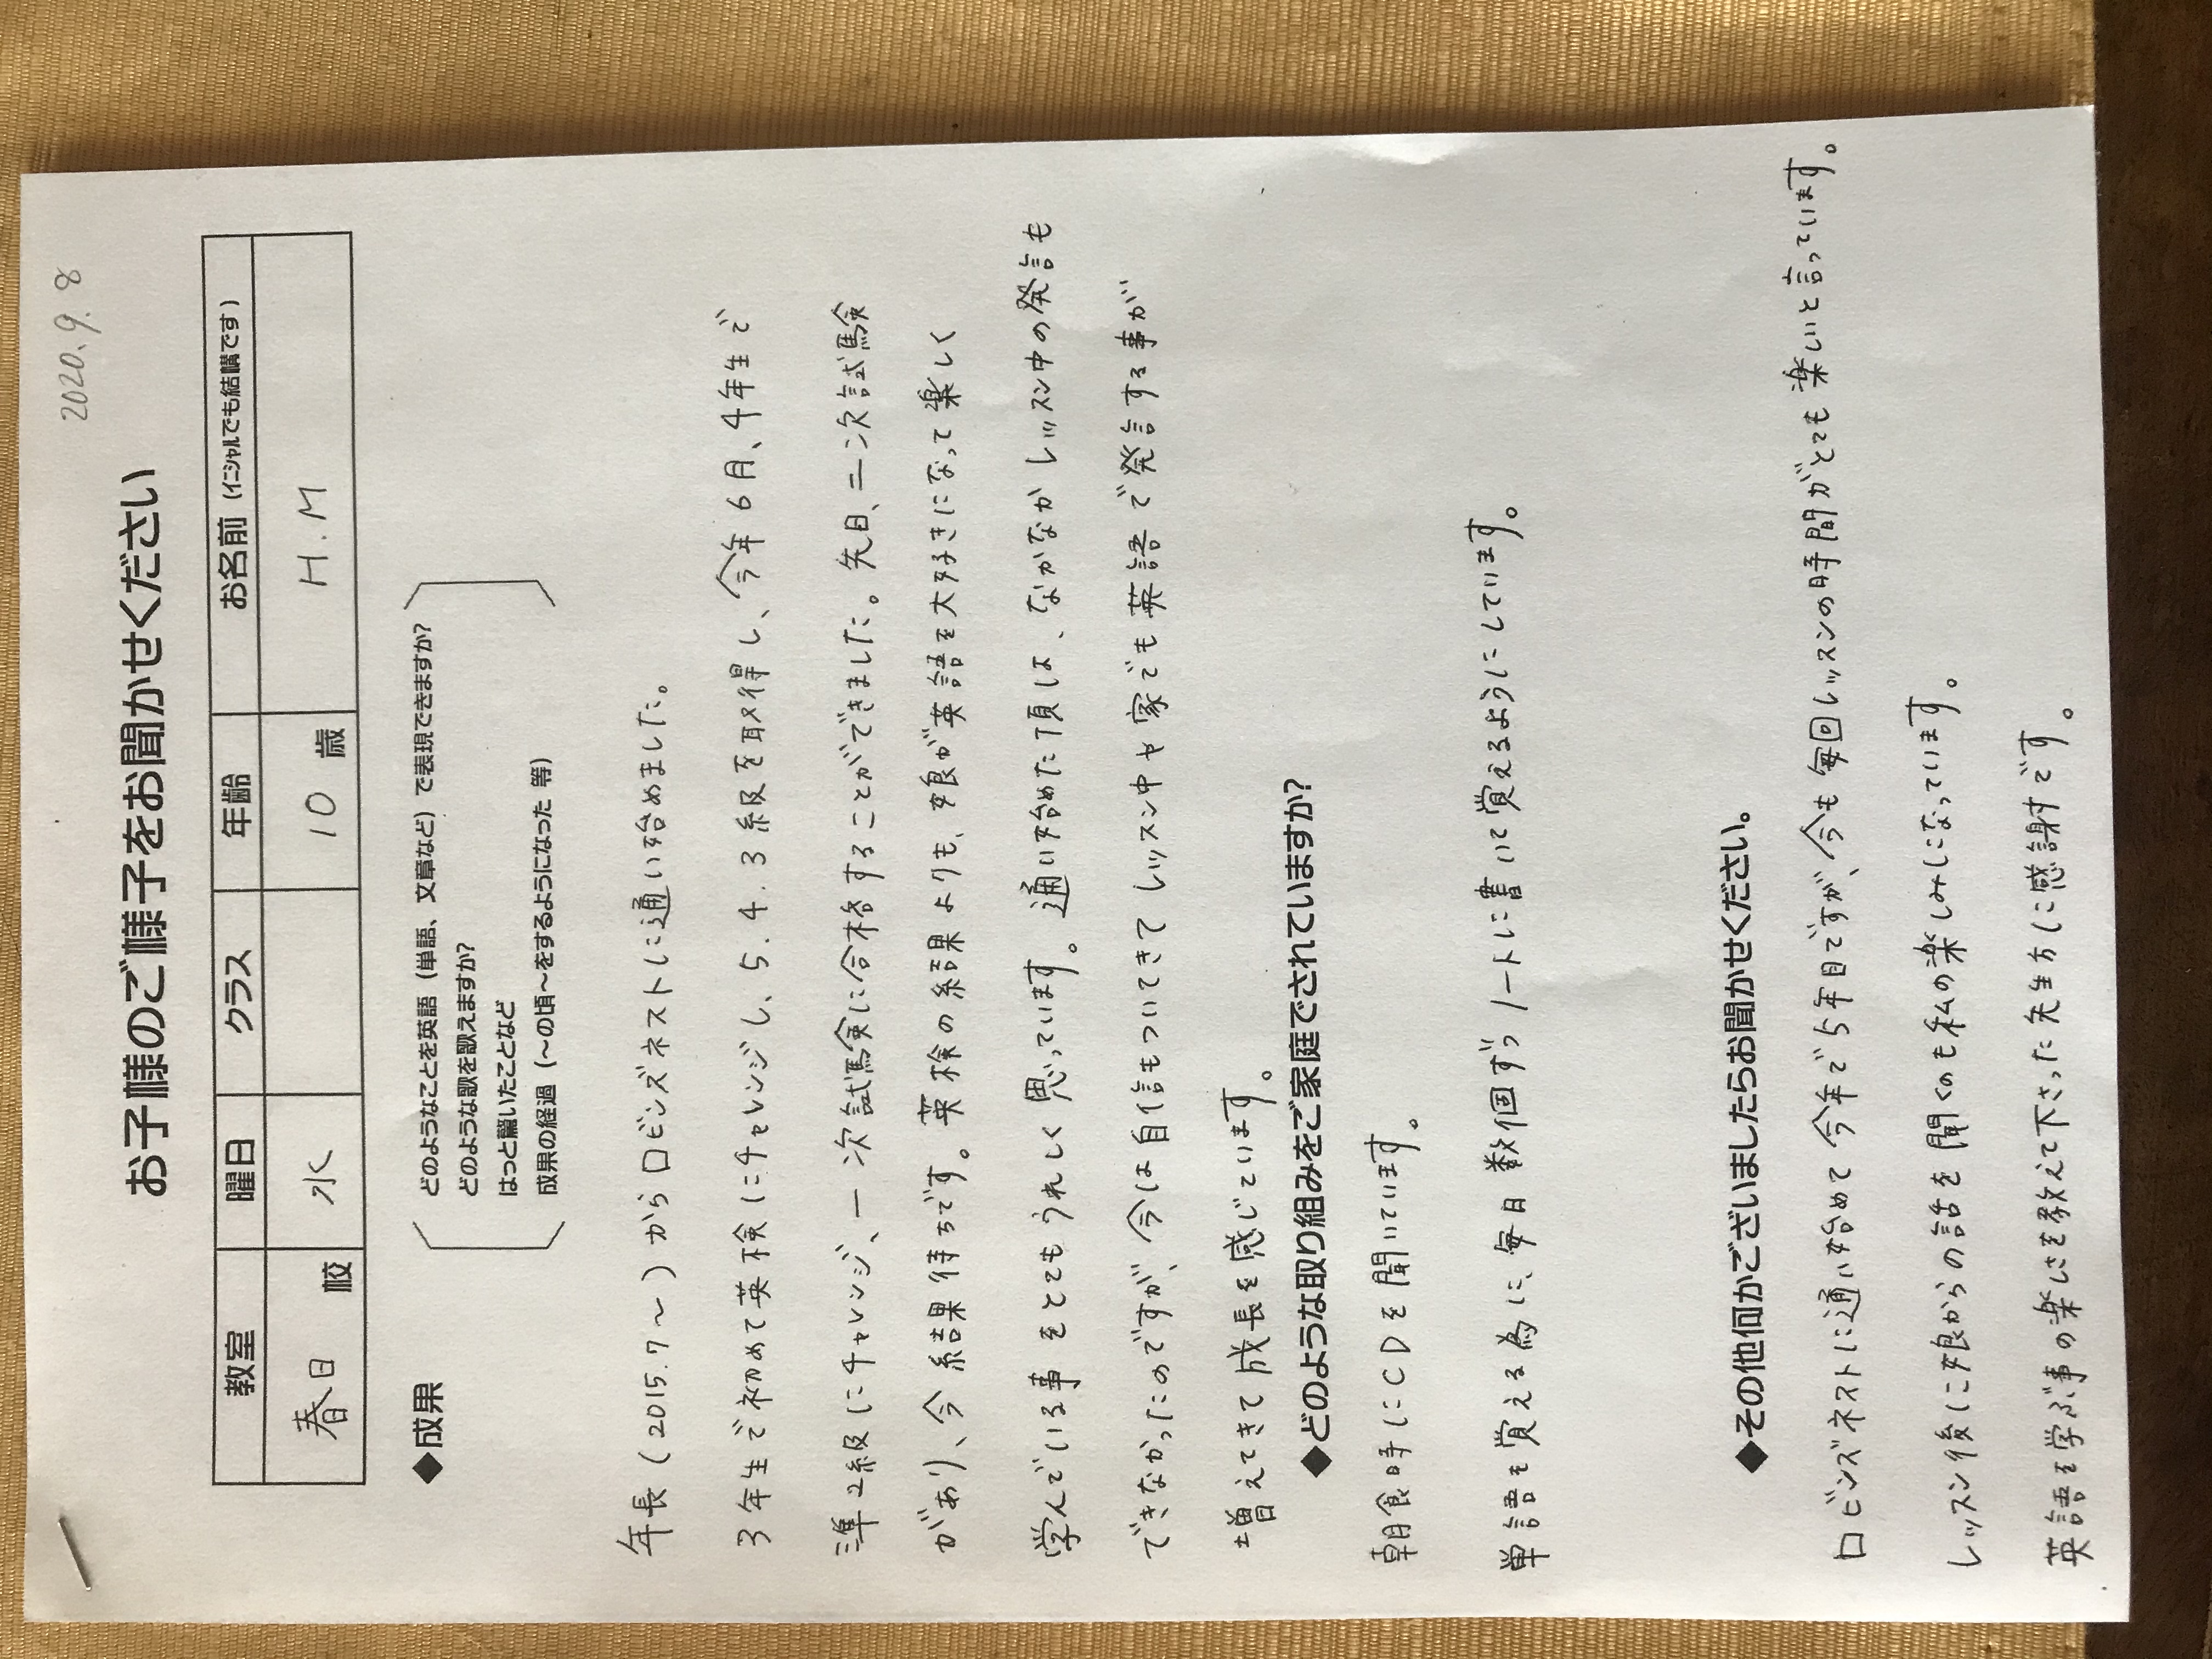 2020.9.8
お子様のご様子をお聞かせください
教室 曜日 クラス 年齢 お名前 (ｲﾆｼｬﾙでも結構です)
春日 校 水 10 歳 H.M
◆成果
どのようなことを英語 (単語、文章など) で表現できますか?
どのような歌を歌えますか?
はっと驚いたことなど
成果の経過 (～の頃～をするようになった 等)
年長 (2015.7～) からロビンズネストに通い始めました。
3年生で初めて英検にチャレンジし、5.4.3級を取得し、今年6月、4年生で
準2級にチャレンジ、一次試験に合格することができました。先日、二次試験
があり、今結果待ちです。英検の結果よりも、娘が英語を大好きになって楽しく
学んでいる事をとてもうれしく思っています。通い始めた頃は、なかなかレッスン中の発言も
できなかったのですが、今は自信もついてきてレッスン中や家でも英語で発言する事が
増えてきて成長を感じています。
◆どのような取り組みをご家庭でされていますか?
朝食時にCDを聞いています。
単語を覚える為に、毎日数個ずつノートに書いて覚えるようにしています。
◆その他何かございましたらお聞かせください。
ロビンズネストに通い始めて今年で5年目ですが、今も毎回レッスンの時間がとても楽しいと言っています。
レッスン後に娘からの話を聞くのも私の楽しみになっています。
英語を学ぶ事の楽しさを教えて下さった先生方に感謝です。